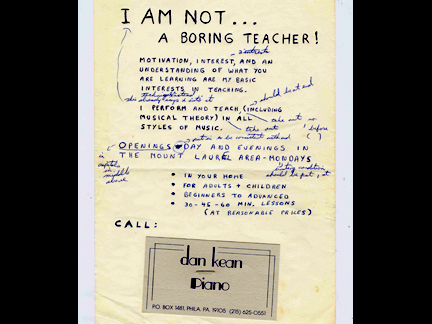 I AM NOT...
A BORING TEACHER!
MOTIVATION, INTEREST, AND AN
UNDERSTANDING OF WHAT YOU
ARE LEARNING ARE MY BASIC
INTERESTS IN TEACHING.
should be at end
I PERFORM AND TEACH, (INCLUDING
take out
MUSICAL THEORY) IN ALL
STYLES OF MUSIC.
take out
before
OPENINGS DAY AND EVENINGS IN
THE MOUNT LAUREL AREA-MONDAYS
in
middle
above
should be put
• IN YOUR HOME
• FOR ADULTS + CHILDREN
• BEGINNERS TO ADVANCED
• 30-45-60 MIN. LESSONS
(AT REASONABLE PRICES)
CALL:
dan kean
Piano
P.O. BOX 1481, PHILA. PA. 19105 (215) 625-0551